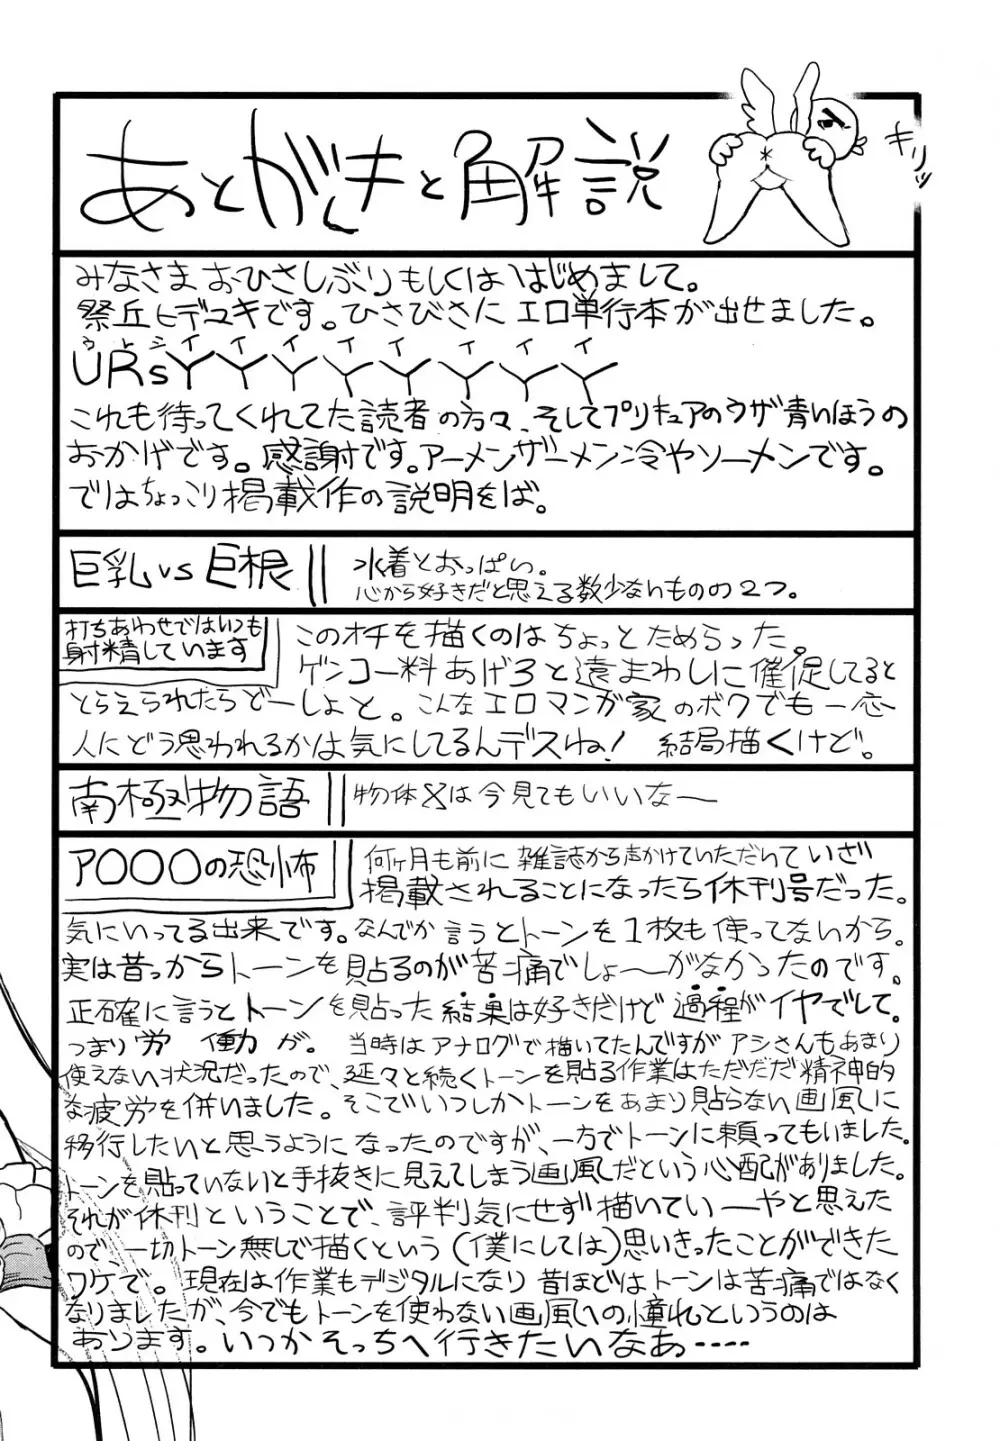 あとがきと解説
キリッ
みなさまおひさしぶりもしくははじめまして。
祭丘ヒデユキです。ひさびさにエロ単行本が出せました。
ウレシイイイイイイイイ
URsYYYYYYYY
これも待ってくれてた読者の方々、そしてプリキュアのウザ青いほうの
おかげです。感謝です。アーメンザーメン冷やソーメンです。
ではちょっこり掲載作の説明をば。
巨乳vs巨根
水着とおっぱい。
心から好きだと思える数少ないものの2つ。
打ちあわせではいつも
射精しています
このオチを描くのはちょっとためらった。
ゲンコー料あげろと遠まわしに催促してると
とらえられたらどーしよと。こんなエロマンガ家のボクでも一応
人にどう思われるかは気にしてるんデスね! 結局描くけど。
南極物語
物体Xは今見てもいいなー
ア〇〇〇の恐怖
何ヶ月も前に雑誌から声かけていただいていざ
掲載されることになったら休刊号だった。
気にいってる出来です。なんでか言うとトーンを1枚も使ってないから。
実は昔っからトーンを貼るのが苦痛でしょ〜がなかったのです。
正確に言うとトーンを貼った結果は好きだけど過程がイヤでして。
つまり労働が。当時はアナログで描いてたんですがアシさんもあまり
使えない状況だったので、延々と続くトーンを貼る作業はただただ精神的
な疲労を併いました。そこでいつしかトーンをあまり貼らない画風に
移行したいと思うようになったのですが、一方でトーンに頼ってもいました。
トーンを貼っていないと手抜きに見えてしまう画風だという心配がありました。
それが休刊ということで、評判気にせず描いていーやと思えた
ので一切トーン無しで描くという(僕にしては)思いきったことができた
ワケで。現在は作業もデジタルになり昔ほどはトーンは苦痛ではなく
なりましたが、今でもトーンを使わない画風への憧れというのは
あります。いつかそっちへ行きたいなあ‥‥